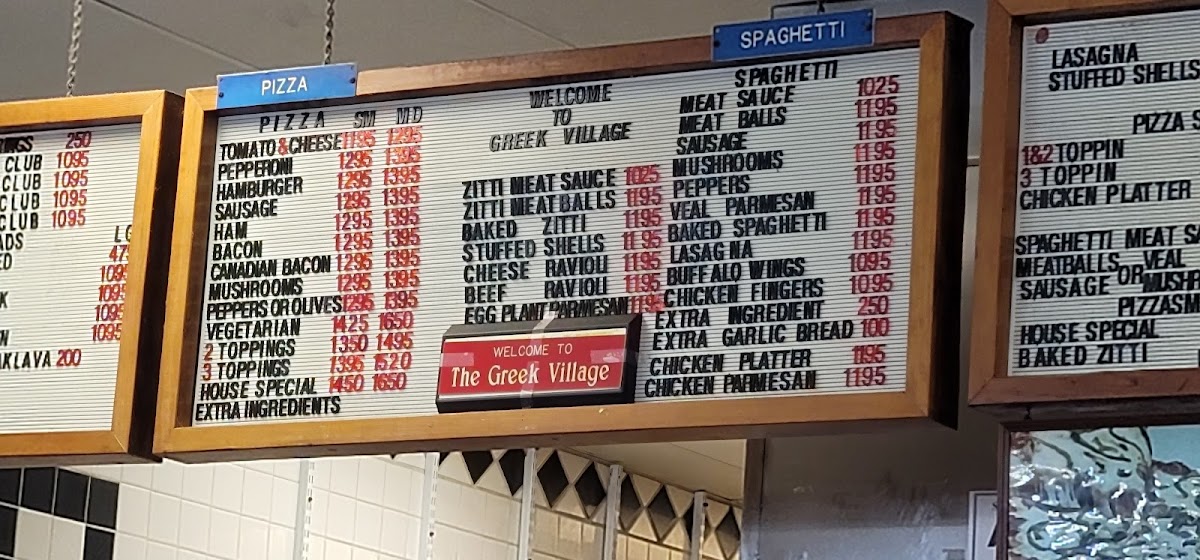 250
CLUB 1095
CLUB 1095
CLUB 1095
CLUB 1095
1095
1095
1095
1095
200
PIZZA
PIZZA SM MD
TOMATO&CHEESE 1195 1295
PEPPERONI 1295 1395
HAMBURGER 1295 1395
SAUSAGE 1295 1395
HAM 1295 1395
BACON 1295 1395
CANADIAN BACON 1295 1395
MUSHROOMS 1295 1395
PEPPERS OR OLIVES 1295 1395
VEGETARIAN 1425 1650
2 TOPPINGS 1350 1495
3 TOPPINGS 1395 1520
HOUSE SPECIAL 1450 1650
EXTRA INGREDIENTS
WELCOME
TO
GREEK VILLAGE
ZITTI MEAT SAUCE 1025
ZITTI MEAT BALLS 1195
BAKED ZITTI 1195
STUFFED SHELLS 1195
CHEESE RAVIOLI 1195
BEEF RAVIOLI 1195
EGG PLANT PARMESAN 1195
WELCOME TO
The Greek Village
SPAGHETTI
SPAGHETTI
MEAT SAUCE 1025
MEAT BALLS 1195
SAUSAGE 1195
MUSHROOMS 1195
PEPPERS 1195
VEAL PARMESAN 1195
BAKED SPAGHETTI 1195
LASAGNA 1195
BUFFALO WINGS 1095
CHICKEN FINGERS 1095
EXTRA INGREDIENT 250
EXTRA GARLIC BREAD 100
CHICKEN PLATTER 1195
CHICKEN PARMESAN 1195
LASAGNA
STUFFED SHELLS
PIZZA
1&2 TOPPIN
3 TOPPIN
CHICKEN PLATTER
SPAGHETTI MEAT
MEATBALLS VEAL
SAUSAGE OR
HOUSE SPECIAL
BAKED ZITTI